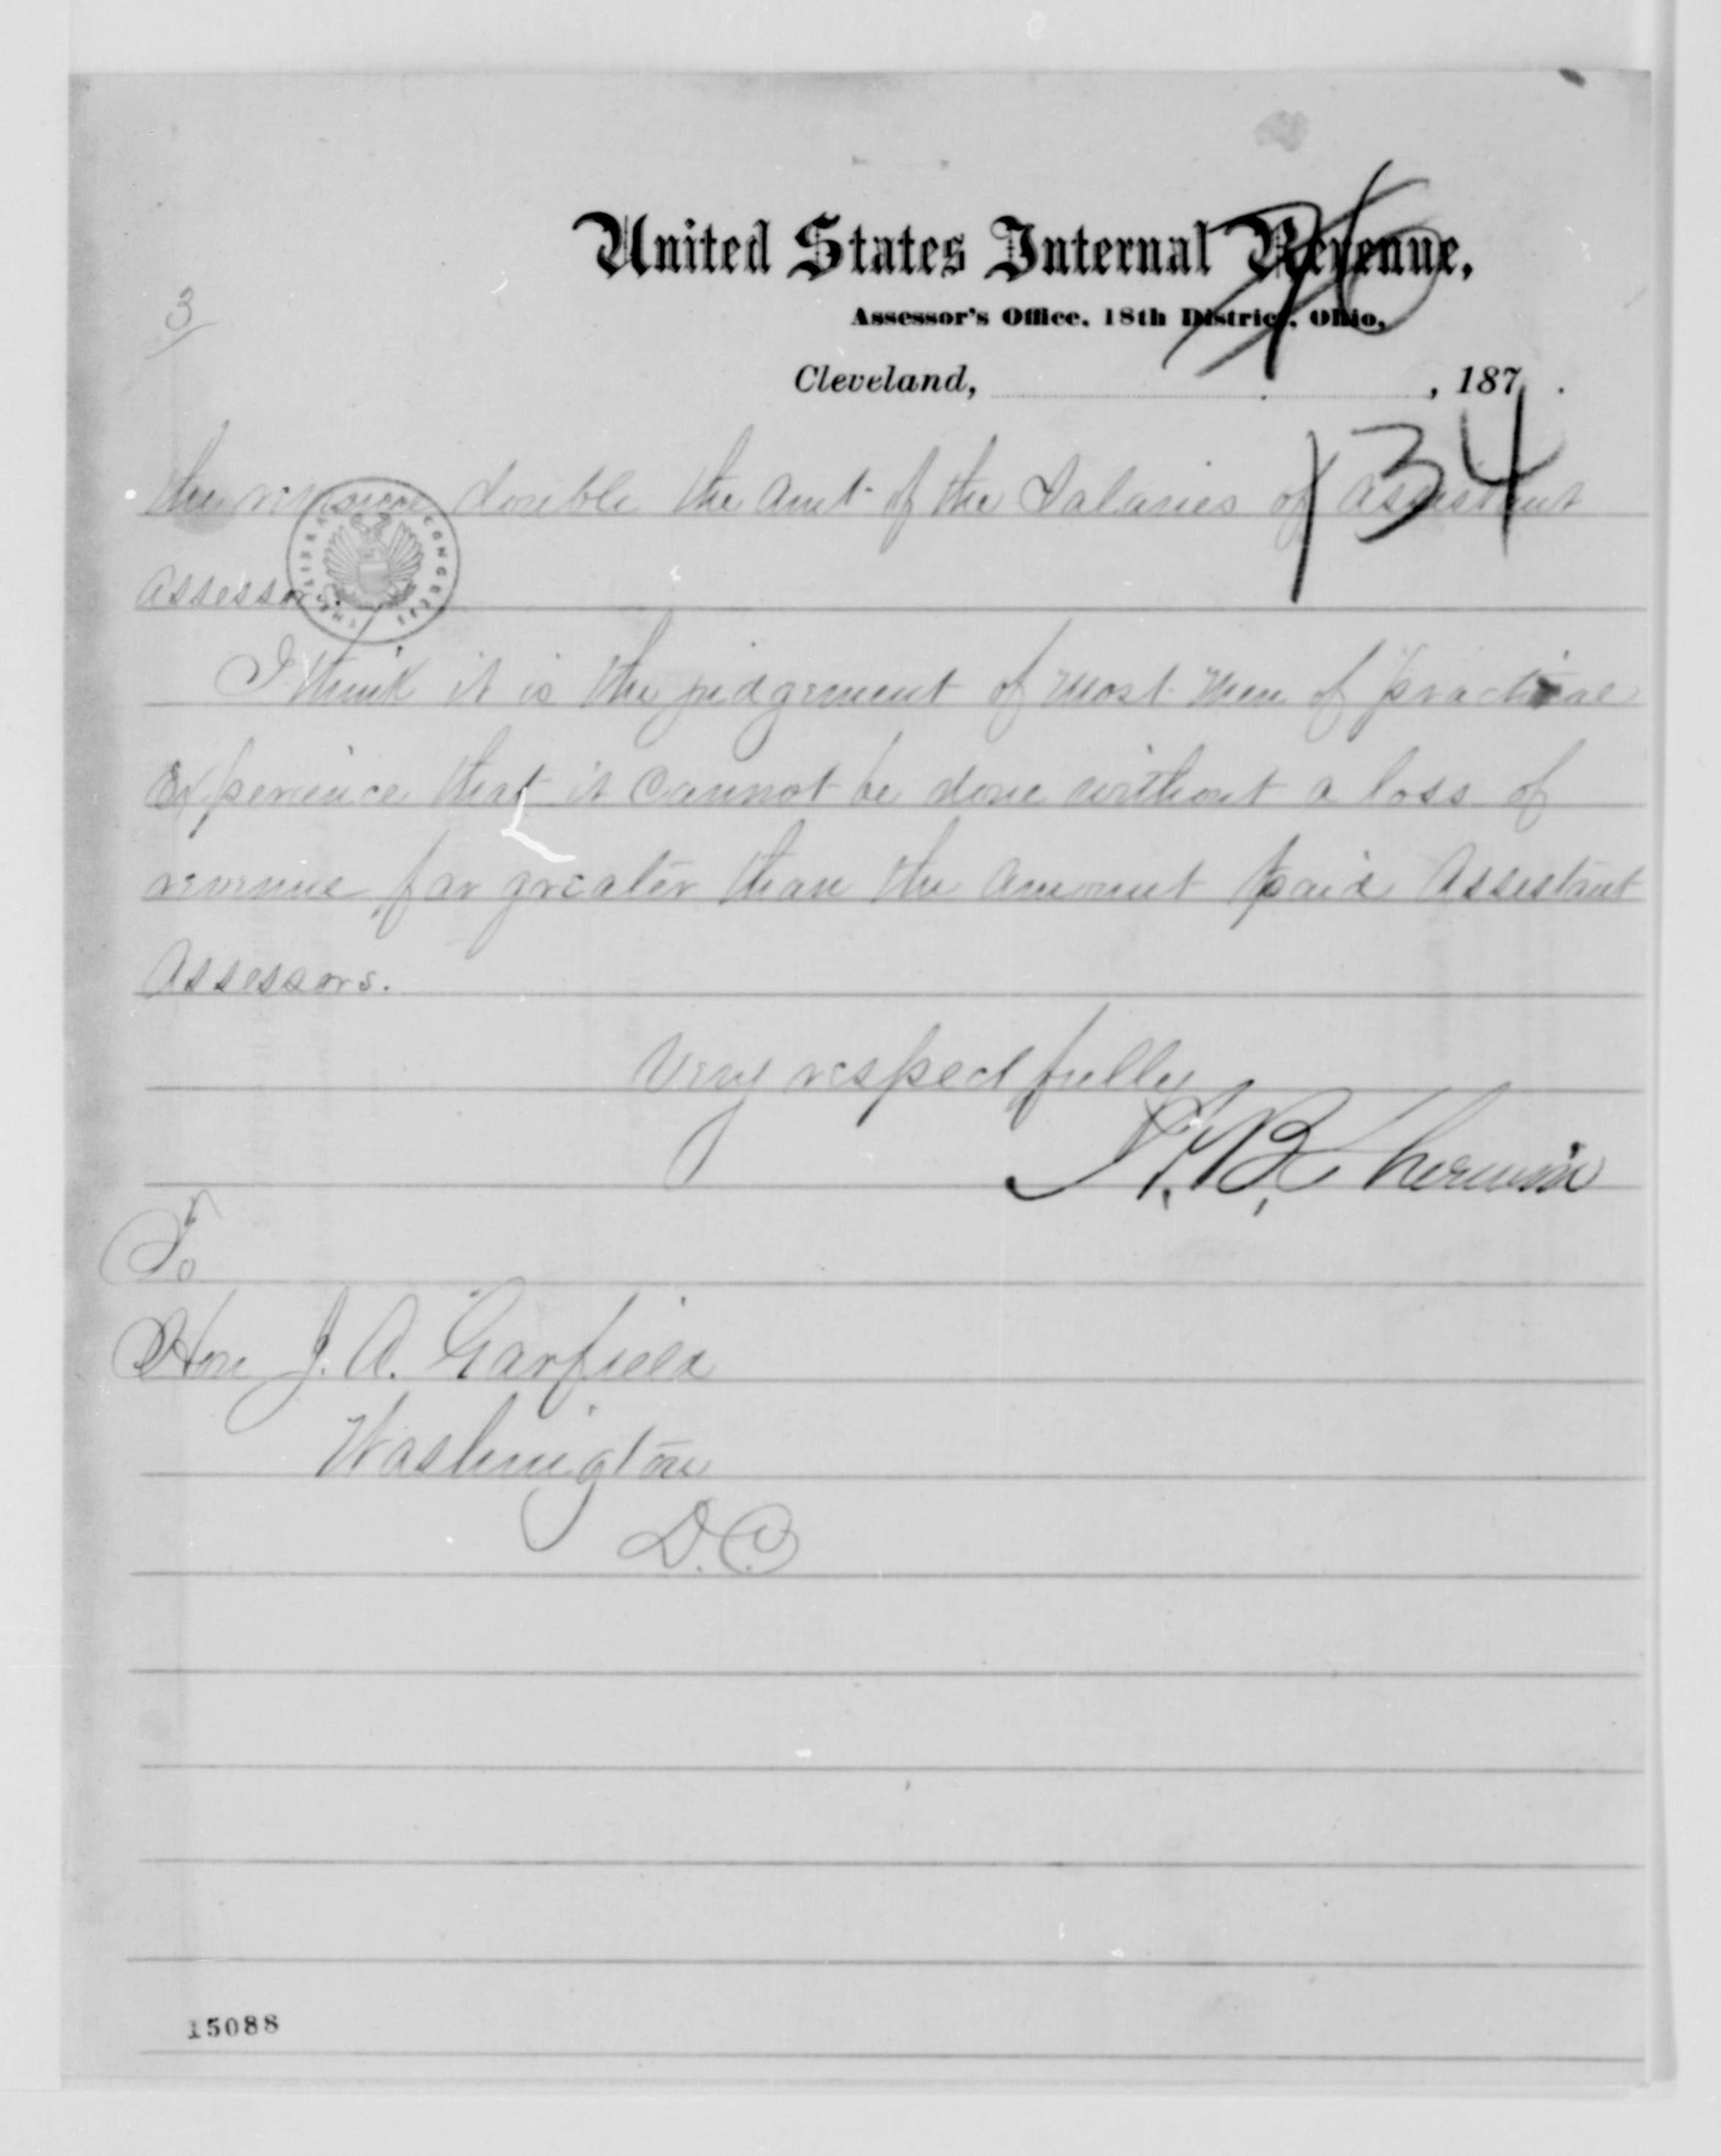 United States Internal Revenue,
Assessor's Office, 18th District, Ohio,
3
Cleveland, , 187 .
134
the revenue double the amt. of the Salaries of assistant
assessors.
THE LIBRARY CONGRESS
I think it is the judgement of most men of practical
Experience that it cannot be done without a loss of
revenue far greater than the amount paid Assistant
Assessors.
Very respectfully
N.B. Sherwin
To
Hon J. A. Garfield
Washington
D.C.
15088